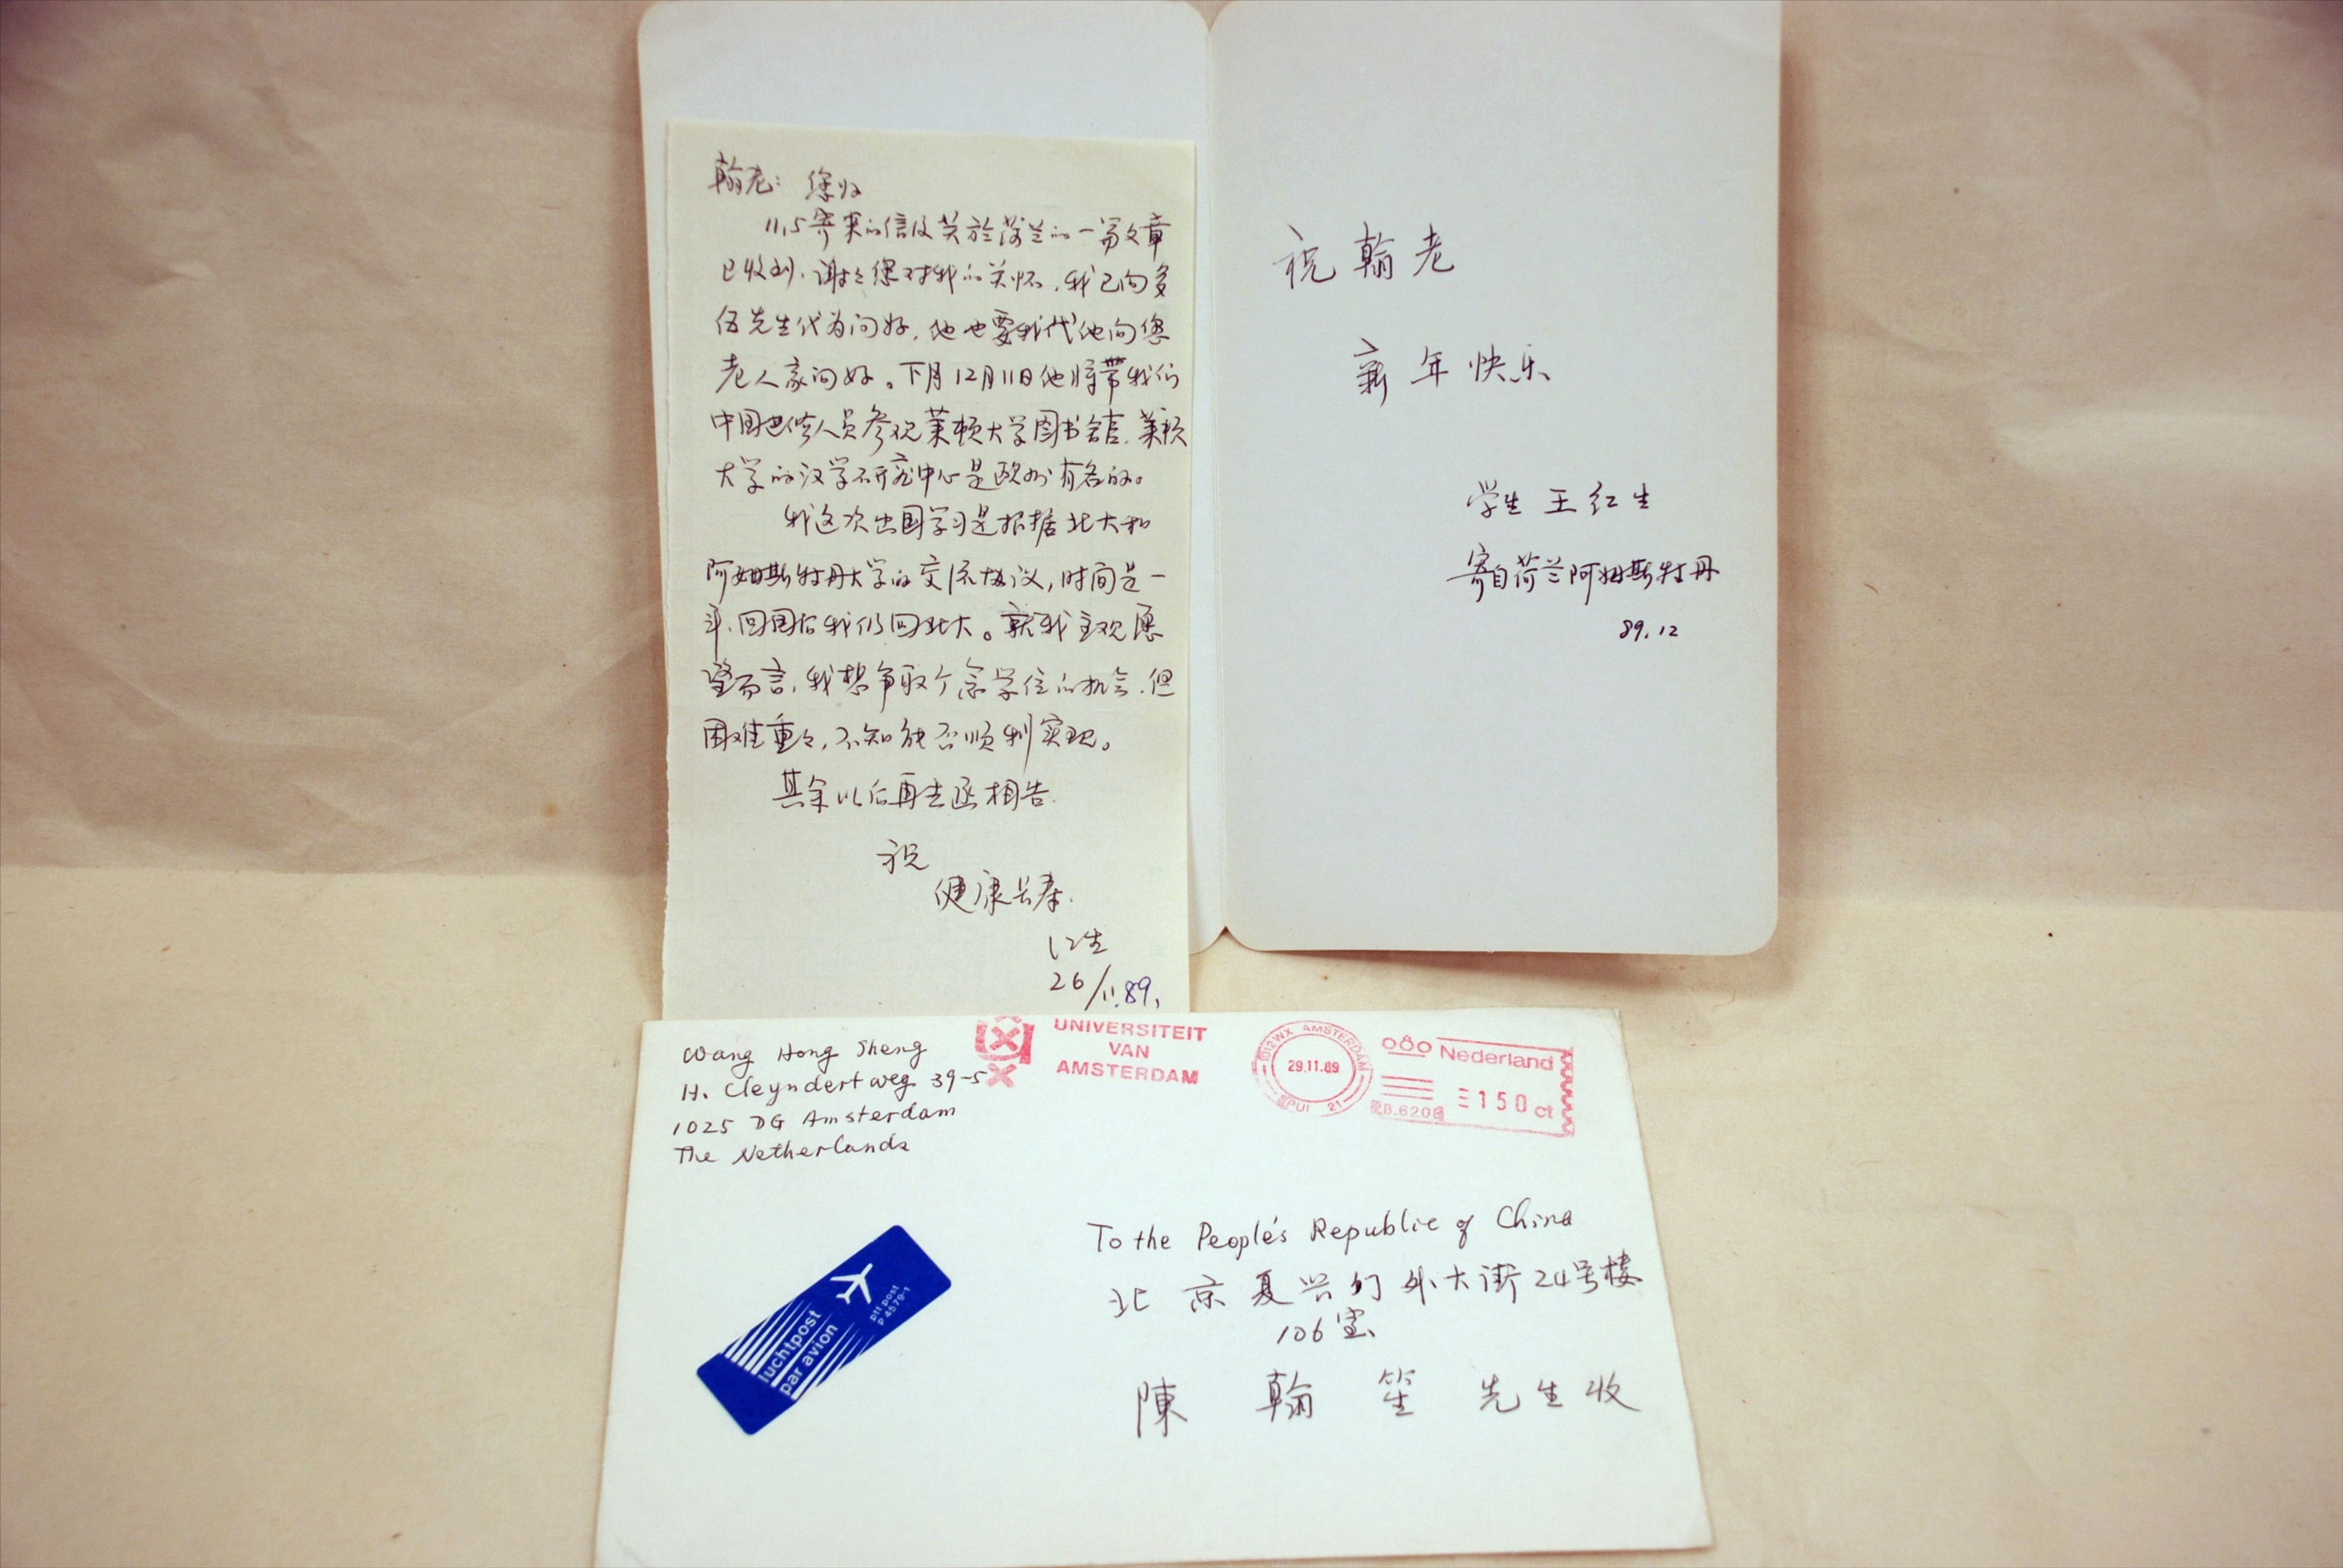 翰老：您好
11.5寄来的信及关於荷兰的一篇文章
已收到，谢谢您对我的关怀，我已向多
伍先生代为问好，他也要我代他向您
老人家问好。下月12月11日他将带我们
中国进修人员参观莱顿大学图书馆，莱顿
大学的汉学研究中心是欧州有名的。
我这次出国学习是根据北大和
阿姆斯特丹大学的交流协议，时间是一
年，回国后我仍回北大。就我主观愿
望而言，我想争取个念学位的机会，但
困难重重，不知能否顺利实现。
其余以后再去函相告.
祝
健康长寿.
红生
26/11.89.
祝翰老
新年快乐
学生 王红生
寄自荷兰阿姆斯特丹
89.12
Wang Hong Sheng
H. Cleyndertweg 39-5
1025 DG Amsterdam
The Netherlands
UNIVERSITEIT
VAN
AMSTERDAM
1012WX AMSTERDAM
29.11.89
SPUI 21
Nederland
150 ct
luchtpost
par avion
ptt post
P 4579-1
To the People's Republic of China
北京复兴门外大街24号楼
106室
陳翰笙 先生收